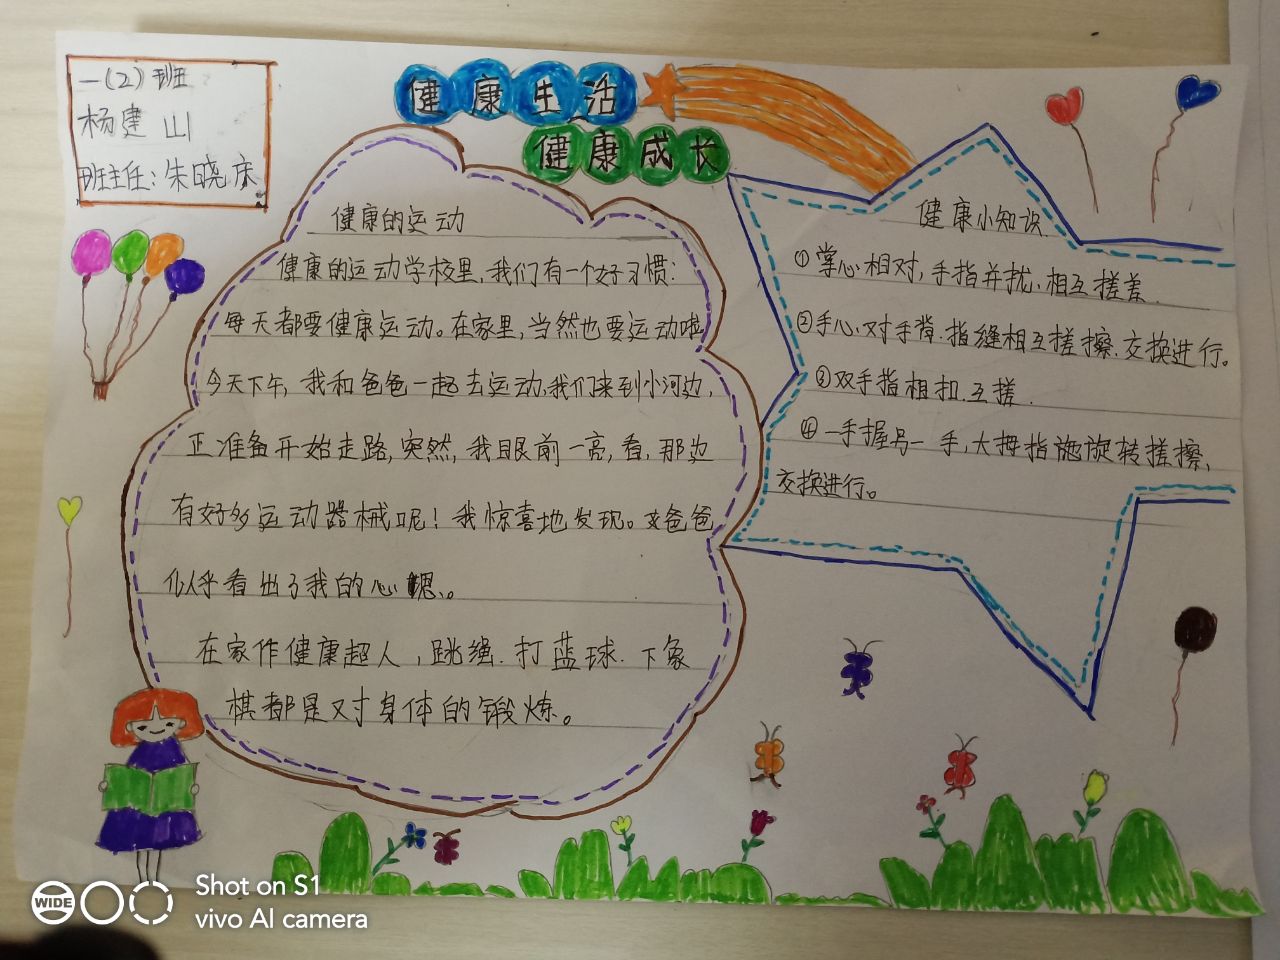 一(2)班
杨建山
班主任:朱晓庆
健康生活
健康成长
健康的运动
健康的运动学校里,我们有一个好习惯:
每天都要健康运动。在家里,当然也要运动啦
今天下午,我和爸爸一起去运动,我们来到小河边,
正准备开始走路,突然,我眼前一亮,看,那边
有好多运动器械呢!我惊喜地发现。爸爸
似乎看出了我的心思。
在家作健康超人,跳绳.打蓝球.下象
棋都是对身体的锻炼。
健康小知识
①掌心相对,手指并拢,相互搓差.
②手心对手背.指缝相互搓擦.交换进行。
③双手指相扣.互搓.
④一手握另一手,大拇指施旋转搓擦,
交换进行。
WIDE
Shot on S1
vivo AI camera